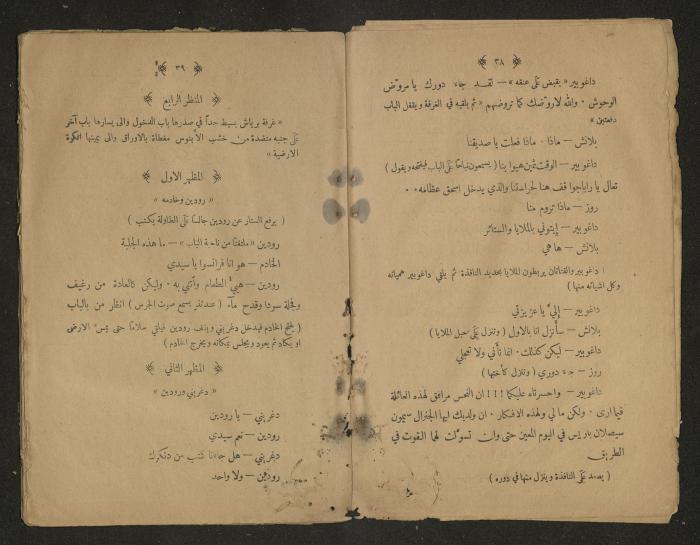 ﴿ ٣٨ ﴾
داغوبير «يقبض على عنقه» — لقد جاء دورك يا مروّض
الوحوش. والله لاروّضك كما تروضهم « ثم يلقيه في الغرفة ويقفل الباب
دفعتين »
بلانش — ماذا. ماذا فعلت يا صديقنا
داغوبير — الوقت ثمين هيوا بنا ( يسمعون نباحًا على الباب فيفتحه ويقول )
تعال يا راباجوا قف هنا لحراستنا والذي يدخل اسحق عظامه.
روز — ماذا تروم منا
داغوبير — إيتوني بالملايا والستائر
بلانش — ها هي
( داغوبير والفتاتان يربطون الملايا بحديد النافذة ثم يلقي داغوبير هميانه
وكل اشيائه منها )
داغوبير — إليَّ يا عزيزتي
بلانش — سأنزل انا بالاول ( وتنزل على حبل الملايا )
داغوبير — ليكن كذلك. انما تأني ولا تعجلي
روز — جاء دوري ( وتنزل كأختها )
داغوبير — واحسرتاه عليكما !!! ان النحس مرافق لهذه العائلة
فيما ارى. ولكن ما لي ولهذه الافكار. ان ولديك ايها الجنرال سيمون
سيصلان باريس في اليوم المعين حتى وان تسوّلت لهما القوت في
الطريق
( يصعد على النافذة وينزل منها في دوره )
﴿ ٣٩ ﴾
﴿ المنظر الرابع ﴾
« غرفة برياش بسيط جدًا في صدرها باب الدخول والى يسارها باب آخر
على جنبه منضدة من خشب الأبنوس مغطاة بالاوراق والى يمينها الكرة
الارضية »
﴿ المظهر الاول ﴾
« رودين وخادمه »
( يرفع الستار عن رودين جالسًا على الطاولة يكتب )
رودين « ملتفتًا من ناحية الباب » — ما هذه الجلبة
الخادم — هو انا فرانسوا يا سيدي
رودين — هيئ الطعام وأتني به. وليكن كالعادة من رغيف
وفجلة سودا وقدح ماء ( عندئذ يسمع صوت الجرس ) انظر من بالباب
( يفتح الخادم فيدخل دغريني ويقف رودين فيلقي سلامًا حتى يمس الارض
او يكاد ثم يعود ويجلس بمكانه ويخرج الخادم )
﴿ المظهر الثاني ﴾
« دغريني ورودين »
دغريني — يا رودين
رودين — نعم سيدي
دغريني — هل جاءنا كتب من دنكرك
رودين — ولا واحد